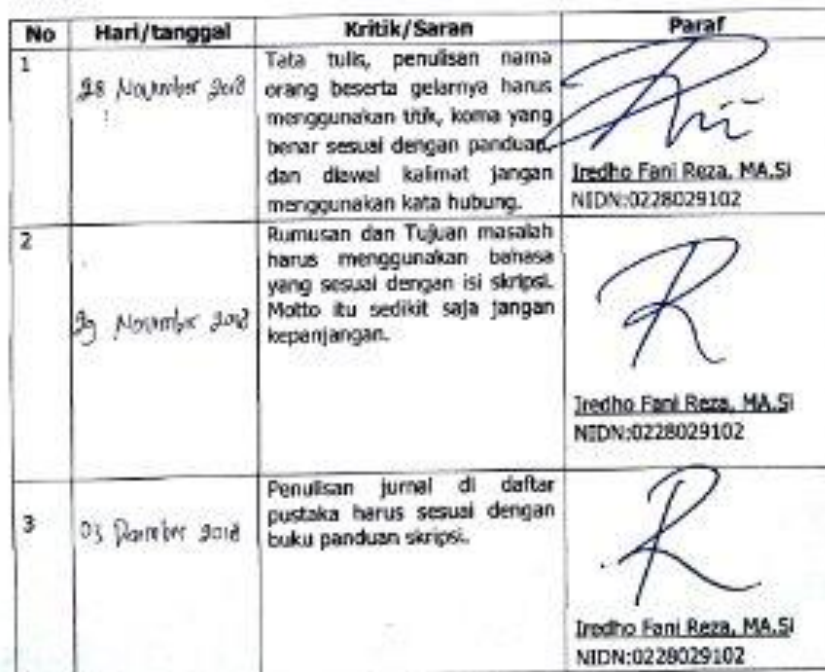 No Hari/tanggal Kritik/Saran Paraf
1
28 November 2018
Tata tulis, penulisan nama
orang beserta gelarnya harus
menggunakan titik, koma yang
benar sesuai dengan panduan,
dan diawal kalimat jangan
menggunakan kata hubung.
Iredho Fani Reza, MA.Si
NIDN:0228029102
2
29 November 2018
Rumusan dan Tujuan masalah
harus menggunakan bahasa
yang sesuai dengan isi skripsi.
Motto itu sedikit saja jangan
kepanjangan.
Iredho Fani Reza, MA.Si
NIDN:0228029102
3
03 Desember 2018
Penulisan jurnal di daftar
pustaka harus sesuai dengan
buku panduan skripsi.
Iredho Fani Reza, MA.Si
NIDN:0228029102